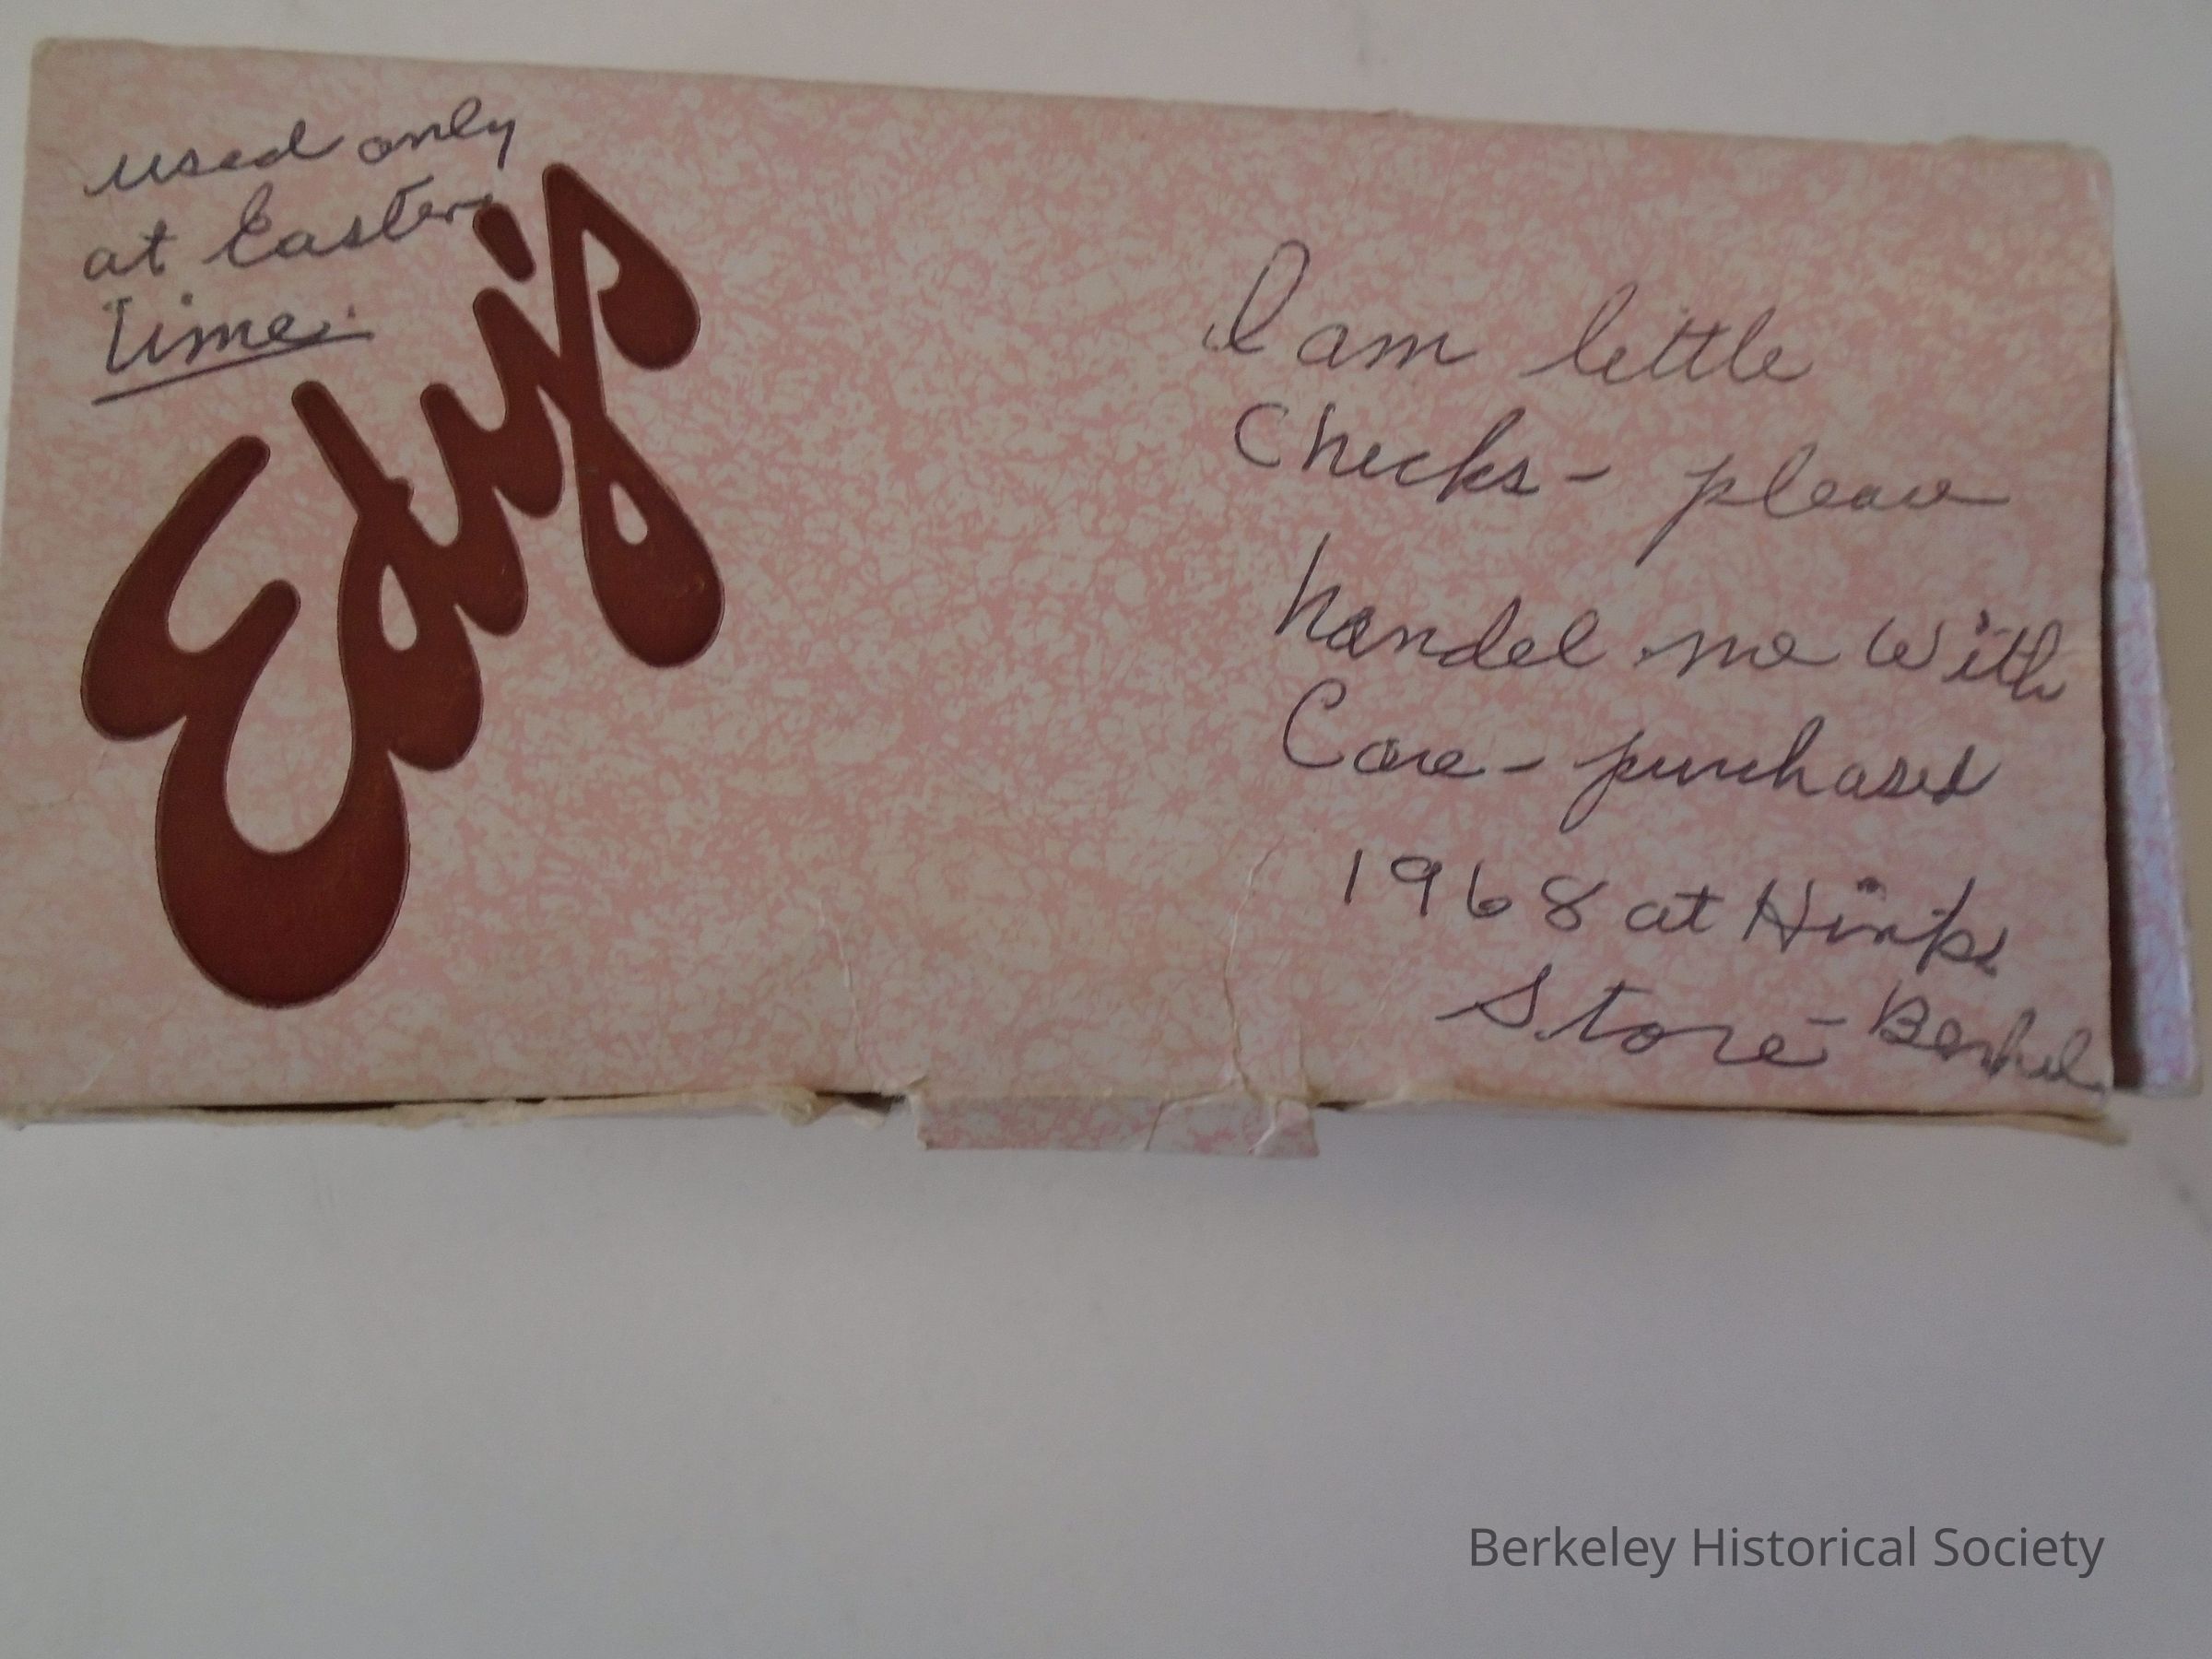 used only
at Easter
Time.
Edy's
I am little
Checks - please
handel me with
Care - purchased
1968 at Hink's
Store - Berkel
Berkeley Historical Society